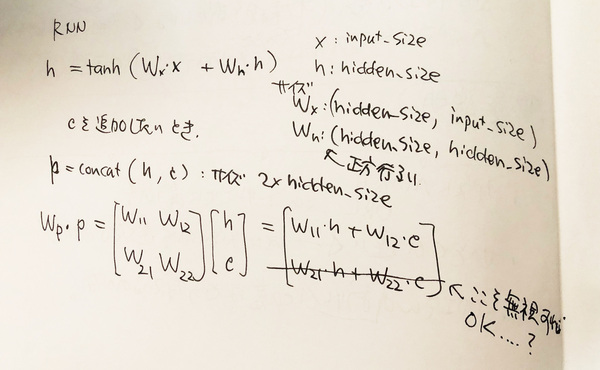 RNN
h = tanh (Wx・x + Wh・h)
x : input_size
h : hidden_size
サイズ
Wx : (hidden_size, input_size)
Wh : (hidden_size, hidden_size)
↖ 正方行列
cを追加したいとき.
p = concat (h, c) : サイズ 2x hidden_size
Wp・p = [W11 W12 W21 W22] [h c] = [W11・h + W12・c
W21・h + W22・c] ↖ ここを無視すれば
OK....?